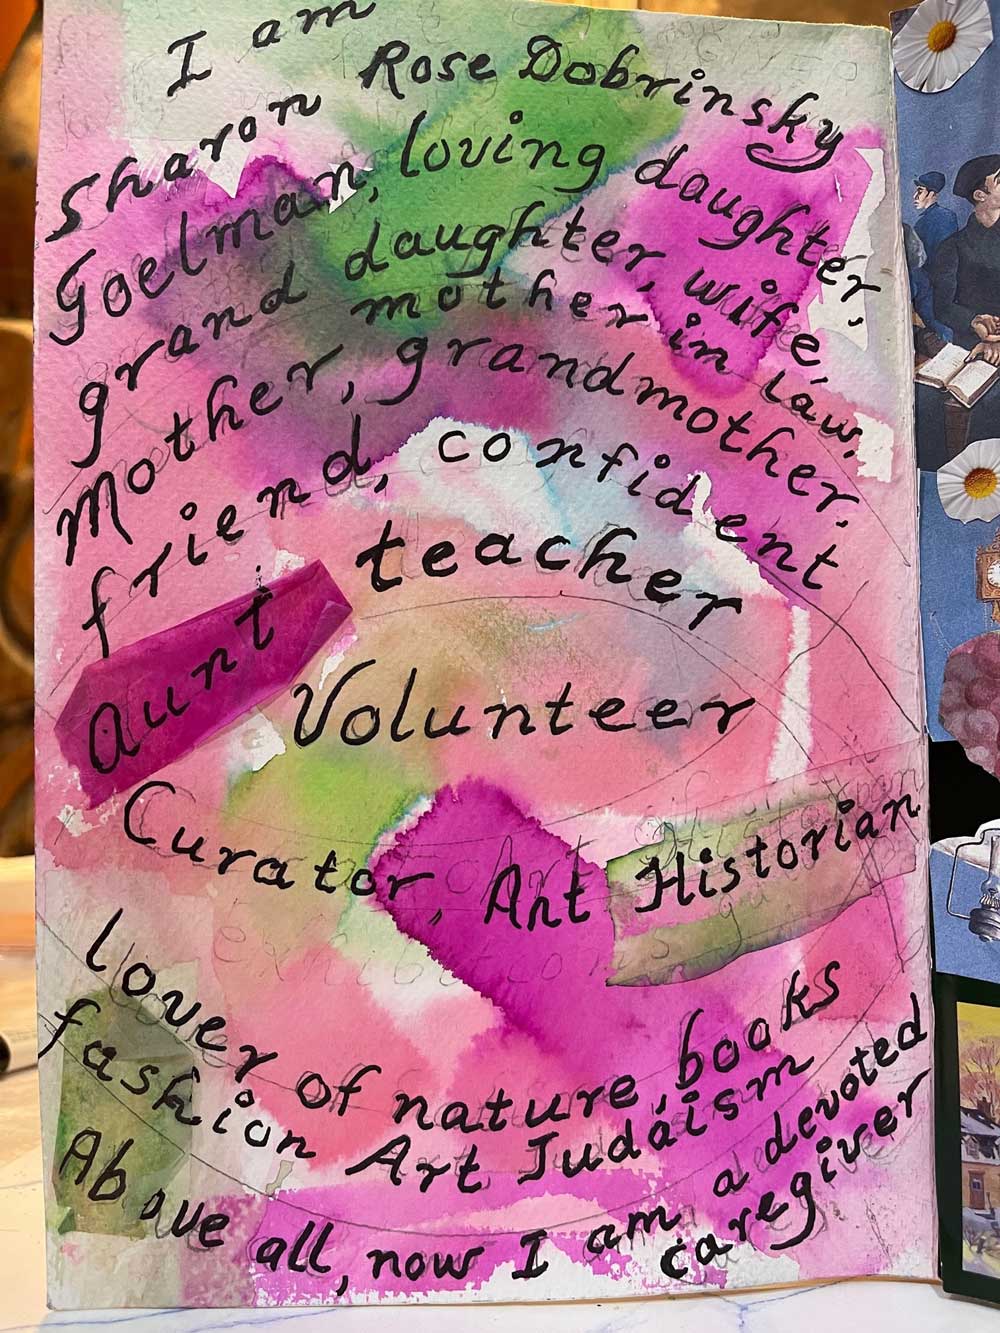 I am
Sharon Rose Dobrinsky
Goelman, loving daughter,
grand daughter, wife,
mother in law,
Mother, grandmother.
friend, confident
Aunt teacher
Volunteer
Curator, Art Historian
lover of nature, books
fashion Art Judaism
Above all, now I am a devoted
caregiver